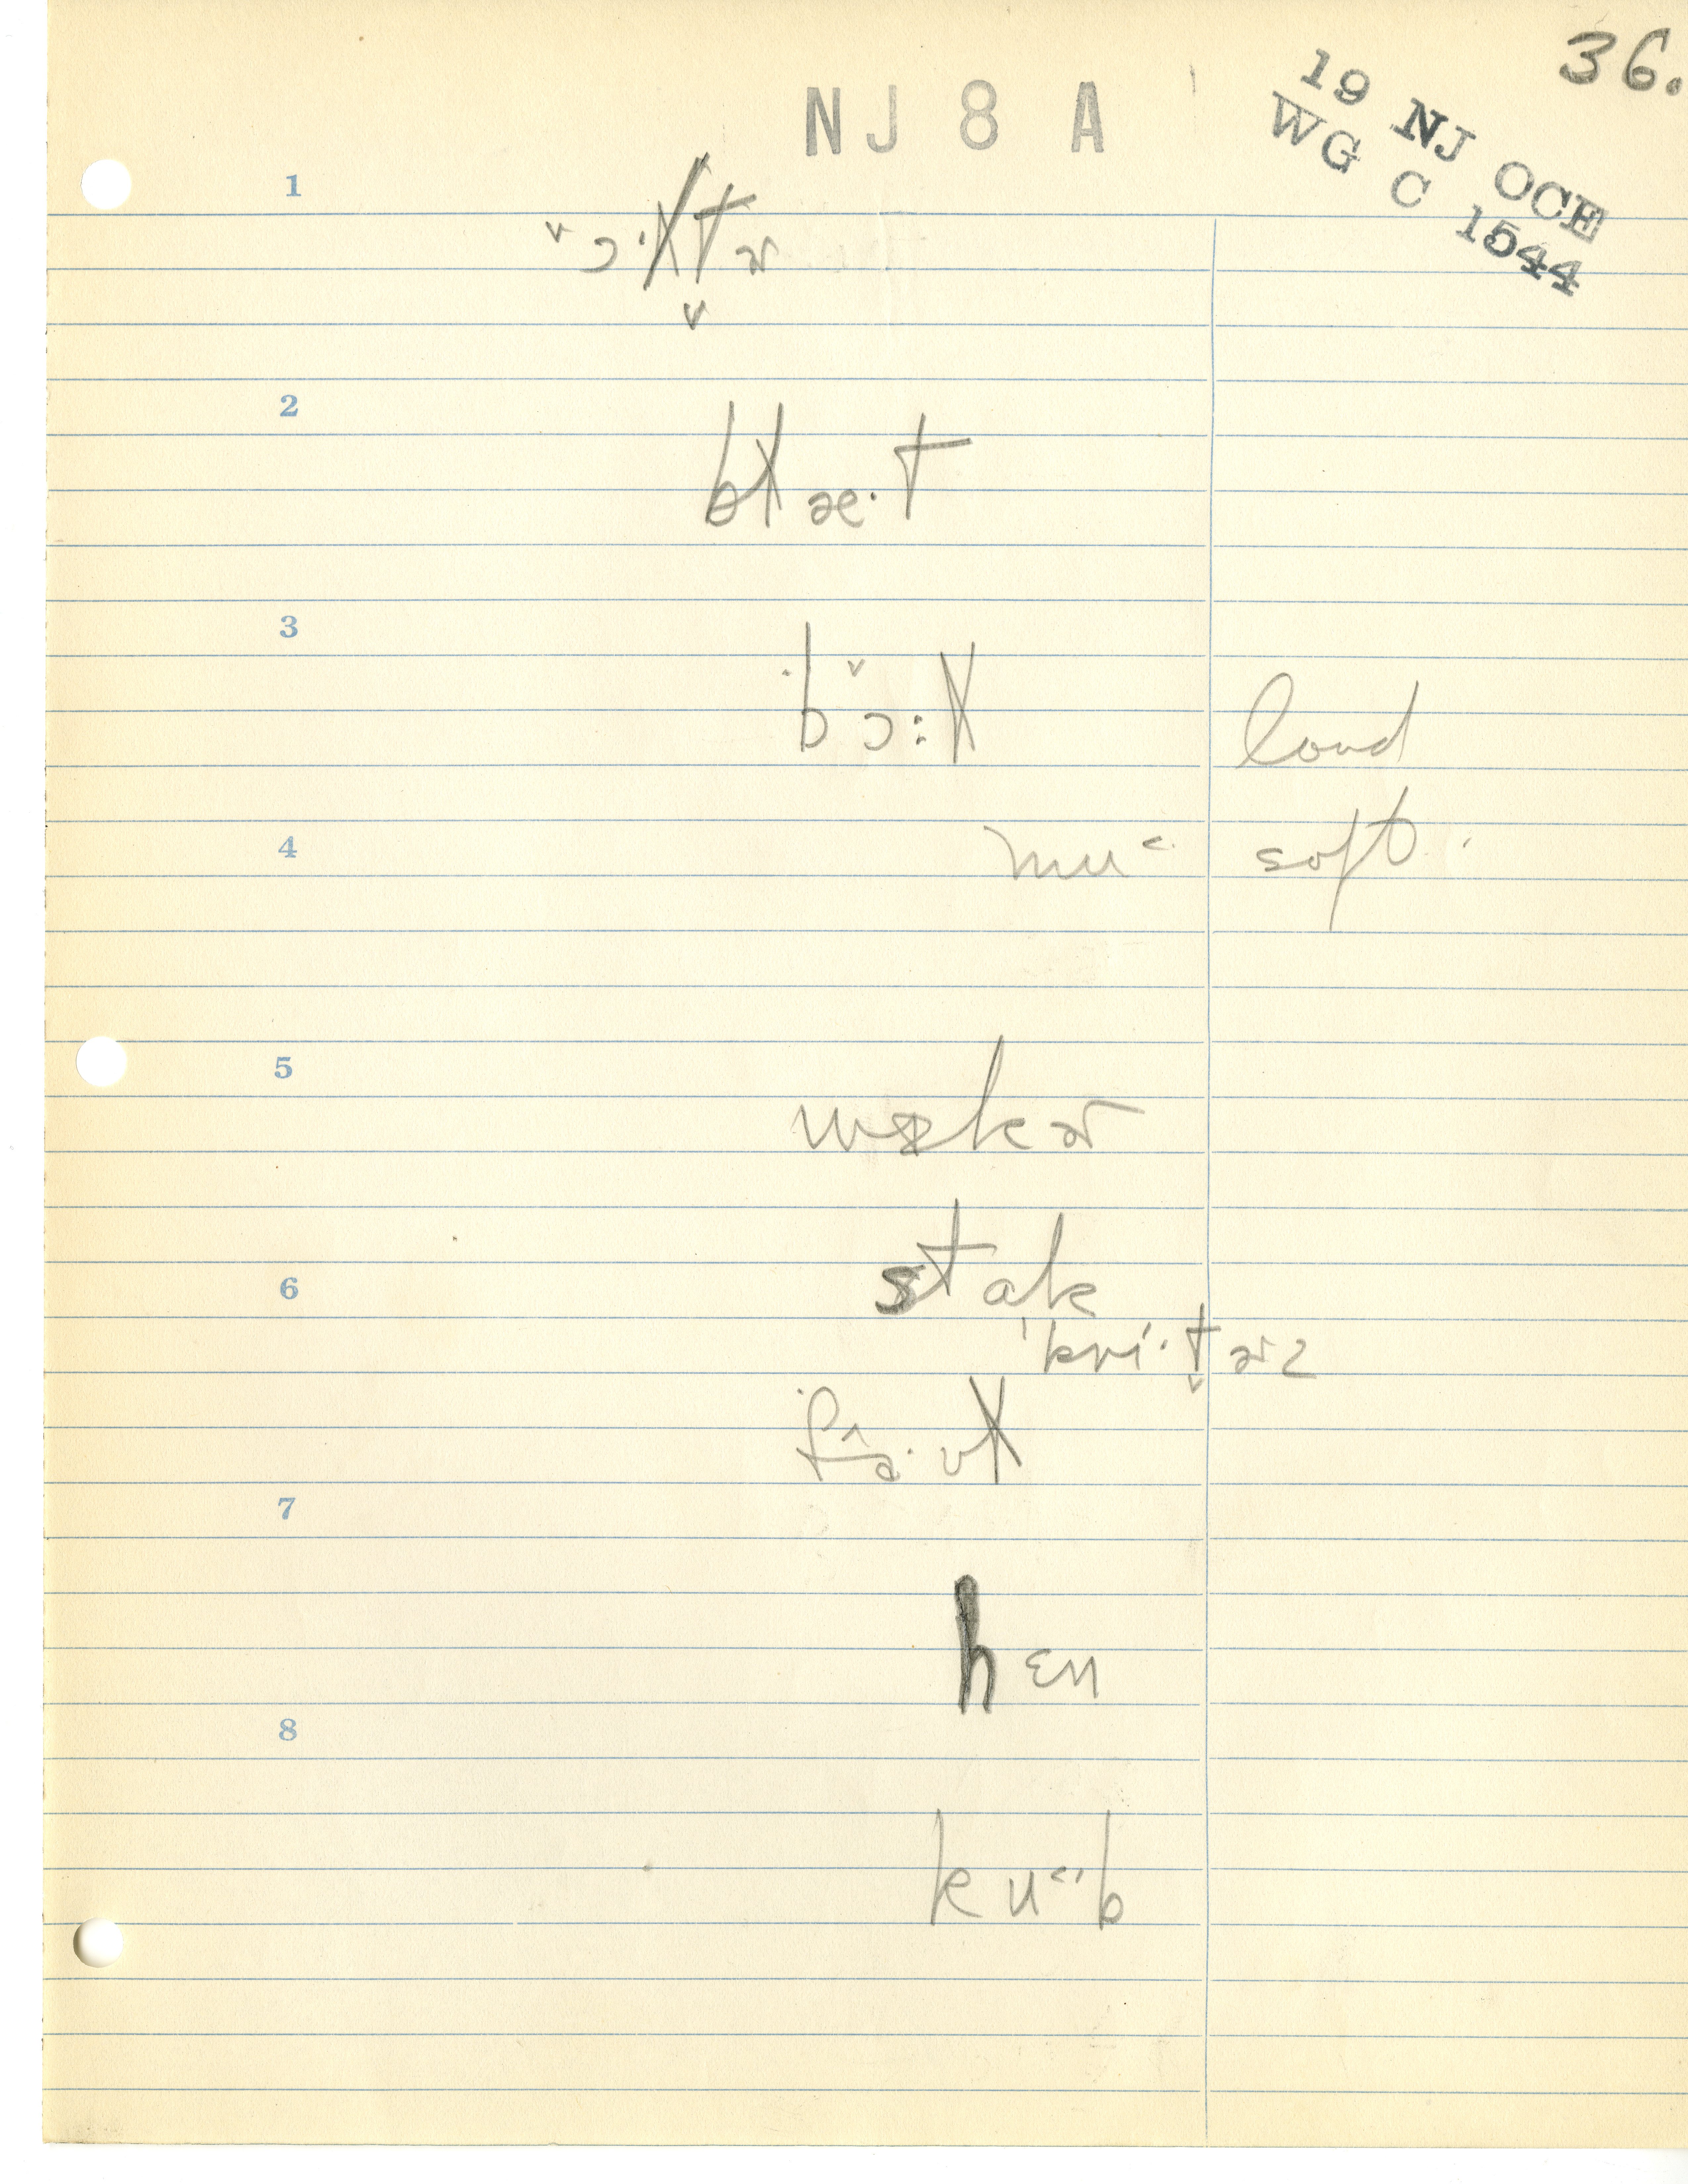 36.
NJ 8 A
19 NJ OCE
WG C 1544
1
ˇɔ·ɫt̬ɚ
2
bɫæ·t
3
bɔ̌:ɫ loud
4
mu˂ soft
5
6
stɑk
ˈkri·t̬ɚz
fa·ʊɫ
7
hɛn
8
ku˂·b